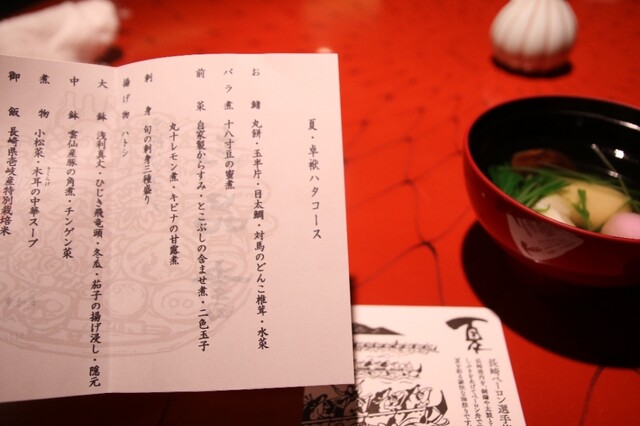 夏・卓袱ハタコース
お鰭 丸餅・玉半片・目太鯛・対馬のどんこ椎茸・水菜
バラ煮 十八寸豆の蜜煮
前菜 自家製からすみ・とこぶしの含ませ煮・二色玉子
丸十レモン煮・キビナの甘露煮
刺身 旬の刺身三種盛り
揚げ物 ハトシ
大鉢 浅利真丈・ひじき飛竜頭・冬瓜・茄子の揚げ浸し・隠元
中鉢 雲仙産豚の角煮・チンゲン菜
煮物 小松菜・木耳の中華スープ
きくらげ
御飯 長崎県壱岐産特別栽培米
夏
長崎ペーロン選手